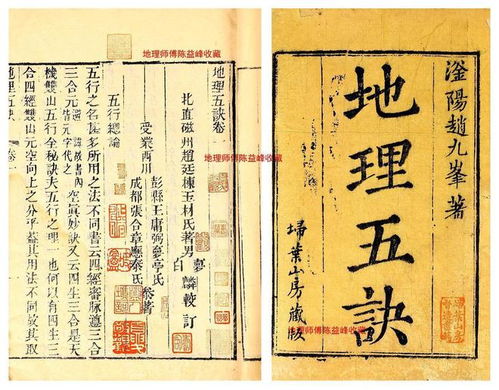 滏陽趙九峯著
地理五訣
掃葉山房藏版
地理师傅陈益峰收藏
地理师傅陈益峰收藏
地理师傅陈益峰收藏
地理五訣卷
北直磁州趙廷棟玉材氏著男
白麟較訂
受業西川
彭縣王庸弼夢亭氏
成都張合章應泰氏
叅著
五行總論
五行之名甚多所用之法不同書云四經審脉遵三合
三合元空真妙訣又云四生三合是天
機雙山五行全秘訣夫五行之理一也何以有四生三
合四經雙山元空向上之分乎蓋其用法不同故其取
地理五訣
卷一